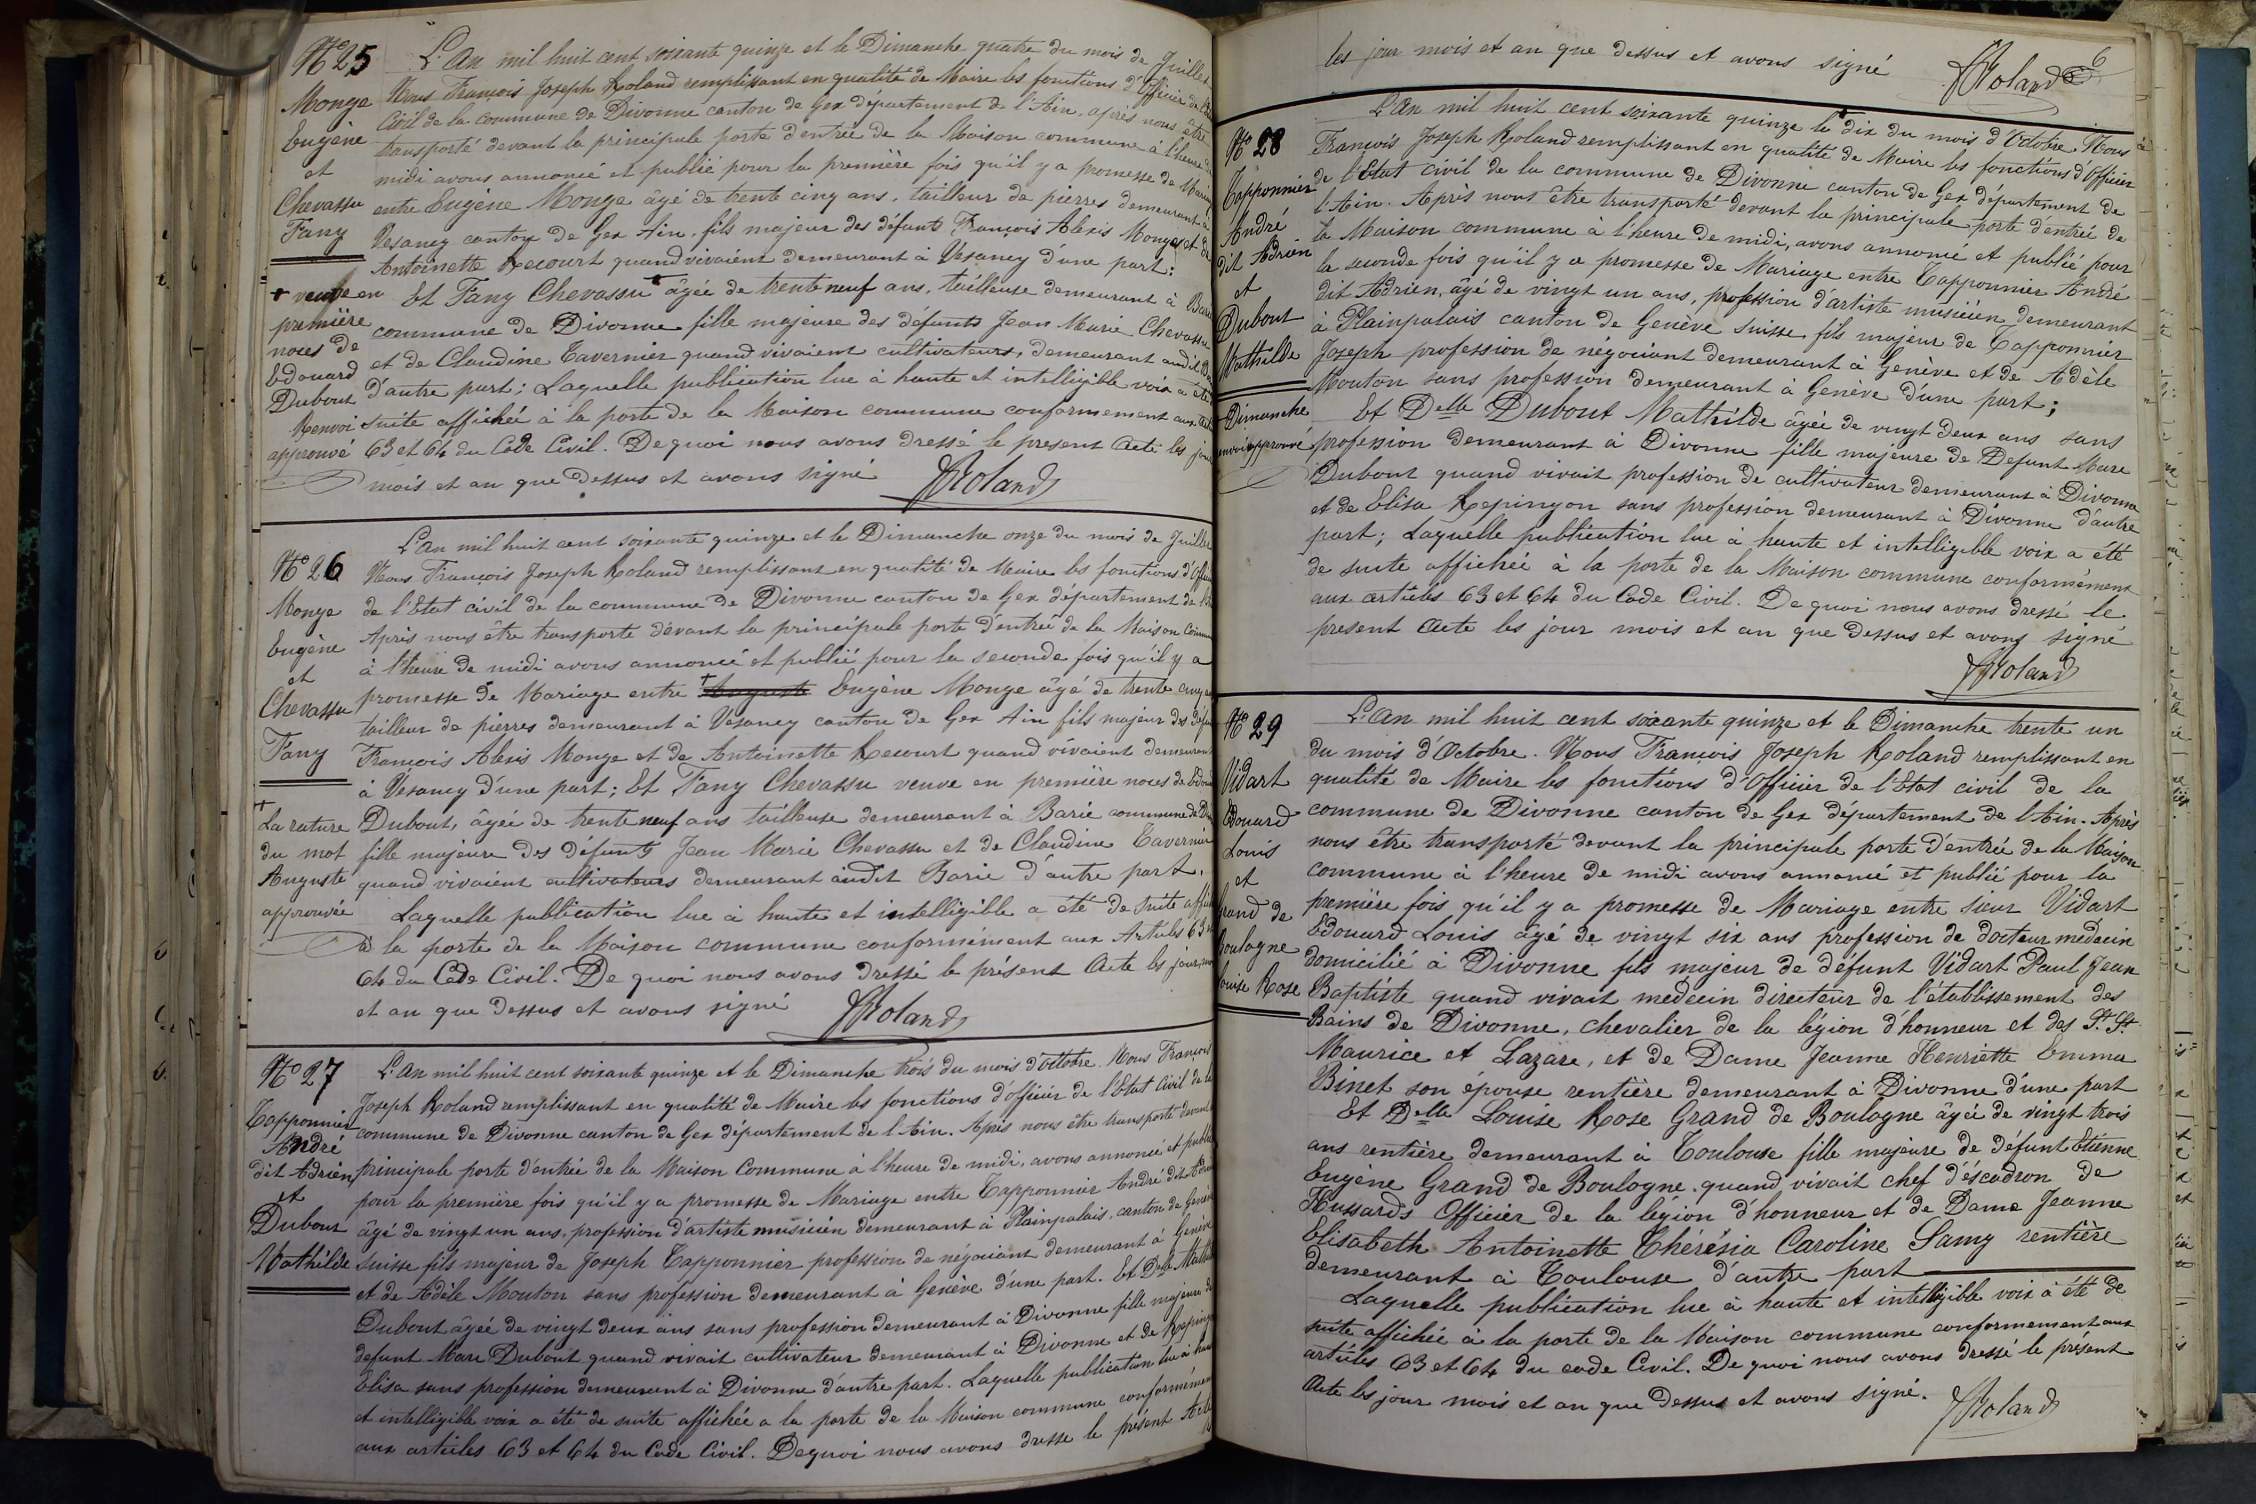 N° 25
Monge
Eugène
et
Chevassu
Fany
+ veuve en
première
noces de
Edouard
Dubout
Renvoi
approuvé
L'An mil huit cent soixante quinze et le Dimanche quatre du mois de Juillet
Nous François Joseph Roland remplissant en qualité de Maire les fonctions d'Officier de l'
Civil de la commune de Divonne canton de Gex département de l'Ain, après nous être
transporté devant la principale porte d'entrée de la Maison commune à l'heure de
midi avons annoncé et publié pour la première fois qu'il y a promesse de Mariage
entre Eugène Monge âgé de trente cinq ans, tailleur de pierres demeurant à
Vesancy canton de Gex Ain, fils majeur des défunts François Alexis Monge et de
Antoinette Recourt quand vivaient demeurant à Vesancy d'une part;
Et Fany Chevassu + âgée de trente neuf ans, tailleuse demeurant à
commune de Divonne fille majeure des défunts Jean Marie Chevassu
et de Claudine Tavernier quand vivaient cultivateurs, demeurant audit
d'autre part; Laquelle publication lue à haute et intelligible voix a été
suite affichée à la porte de la Maison commune conformement aux
63 et 64 du Code Civil. De quoi nous avons dressé le present Acte les jour
mois et an que dessus et avons signé
JRoland
N° 26
Monge
Eugène
et
Chevassu
Fany
+
La rature
du mot
Auguste
approuvée
L'an mil huit cent soixante quinze et le Dimanche onze du mois de Juillet
Nous François Joseph Roland remplissant en qualité de Maire les fonctions d'
de l'Etat civil de la commune de Divonne canton de Gex département de
Après nous être transporté dévant la principale porte d'entrée de la Maison
à l'heure de midi avons annoncé et publié pour la seconde fois qu'il y a
promesse de Mariage entre + Auguste Eugène Monge âgé de trente cinq
tailleur de pierres demeurant à Vesancy canton de Gex Ain fils majeur des
François Alexis Monge et de Antoinette Recourt quand vivaient demeurant
à Vesancy d'une part; Et Fany Chevassu veuve en première noces de
Dubout, âgée de trente neuf ans tailleuse demeurant à Barie commune de
fille majeure des défunts Jean Marie Chevassu et de Claudine Tavernier
quand vivaient cultivateurs demeurant audit Barie d'autre part.
Laquelle publication lue à haute et intelligible a été de suite
à la porte de la Maison commune conformément aux Articles 63
64 du Code Civil. De quoi nous avons dressé le présent Acte les jour,
et an que dessus et avons signé
JRoland
N° 27
Tapponnier
André
dit Adrien
et
Dubout
Mathilde
L'An mil huit cent soixante quinze et le Dimanche trois du mois d'octobre. Nous François
Joseph Roland remplissant en qualité de Maire les fonctions d'officier de l'Etat Civil de la
commune de Divonne canton de Gex département de l'Ain. Après nous être transporté devant
principale porte d'entrée de la Maison Commune à l'heure de midi, avons annoncé et publié
pour la première fois qu'il y a promesse de Mariage entre Tapponnier André dit
âgé de vingt un ans, profession d'artiste musicien demeurant à Plainpalais, canton de Genève
Suisse fils majeur de Joseph Tapponnier profession de négociant demeurant à Genève
et de Adèle Mouton sans profession demeurant à Genève d'une part. Et Delle
Dubout âgée de vingt deux ans sans profession demeurant à Divonne fille majeure de
defunt Marc Dubout quand vivait cultivateur demeurant à Divonne et de
Elisa sans profession demeurant à Divonne d'autre part. Laquelle publication lue à
et intelligible voix a été de suite affichée a la porte de la Maison commune conformément
aux articles 63 et 64 du Code Civil. De quoi nous avons dressé le présent Acte
les jour mois et an que dessus et avons signé
JRoland
6
N° 28
Tapponnier
André
dit Adrien
et
Dubout
Mathilde
Dimanche
approuvé
L'An mil huit cent soixante quinze le + dix du mois d'Octobre. Nous
François Joseph Roland remplissant en qualité de Maire les fonctions d'Officier
de l'Etat civil de la commune de Divonne canton de Gex département de
l'Ain. Après nous être transporté devant la principale porte d'entrée de
la Maison commune à l'heure de midi, avons annoncé et publié pour
la seconde fois qu'il y a promesse de Mariage entre Tapponnier André
dit Adrien, âgé de vingt un ans, profession d'artiste musicien demeurant
à Plainpalais canton de Genève Suisse fils majeur de Tapponnier
Joseph profession de négociant demeurant à Genève et de Adèle
Mouton sans profession demeurant à Genève d'une part;
Et Delle Dubout Mathilde âgée de vingt deux ans sans
profession demeurant à Divonne fille majeure de Defunt Marc
Dubout quand vivait profession de cultivateur demeurant à Divonne
et de Elisa Repingon sans profession demeurant à Divonne d'autre
part; Laquelle publication lue à haute et intelligible voix a été
de suite affichée à la porte de la Maison commune conformément
aux articles 63 et 64 du Code Civil. De quoi nous avons dressé le
présent Acte les jour mois et an que dessus et avons signé
JRoland
N° 29
Vidart
Edouard
Louis
et
Grand de
Boulogne
Louise Rose
L'An mil huit cent soixante quinze et le Dimanche trente un
du mois d'Octobre. Nous François Joseph Roland remplissant en
qualité de Maire les fonctions d'Officier de l'Etat civil de la
commune de Divonne canton de Gex département de l'Ain. Après
nous être transporté devant la principale porte d'entrée de la Maison
commune à l'heure de midi avons annoncé et publié pour la
première fois qu'il y a promesse de Mariage entre sieur Vidart
Edouard Louis âgé de vingt six ans profession de docteur medecin
domicilié à Divonne fils majeur de défunt Vidart Paul Jean
Baptiste quand vivait medecin directeur de l'établissement des
Bains de Divonne, chevalier de la légion d'honneur et des St. St.
Maurice et Lazare, et de Dame Jeanne Henriette Emma
Binet son épouse rentière demeurant à Divonne d'une part
Et Delle Louise Rose Grand de Boulogne âgée de vingt trois
ans rentière demeurant à Toulouse fille majeure de défunt Etienne
Eugène Grand de Boulogne quand vivait chef d'éscadron de
Hussards Officier de la légion d'honneur et de Dame Jeanne
Elisabeth Antoinette Thérésia Caroline Samy rentière
demeurant à Toulouse d'autre part
Laquelle publication lue à haute et intelligible voix à été de
suite affichée à la porte de la Maison commune conformement aux
articles 63 et 64 du code Civil. De quoi nous avons dressé le présent
Acte les jour mois et an que dessus et avons signé.
JRoland